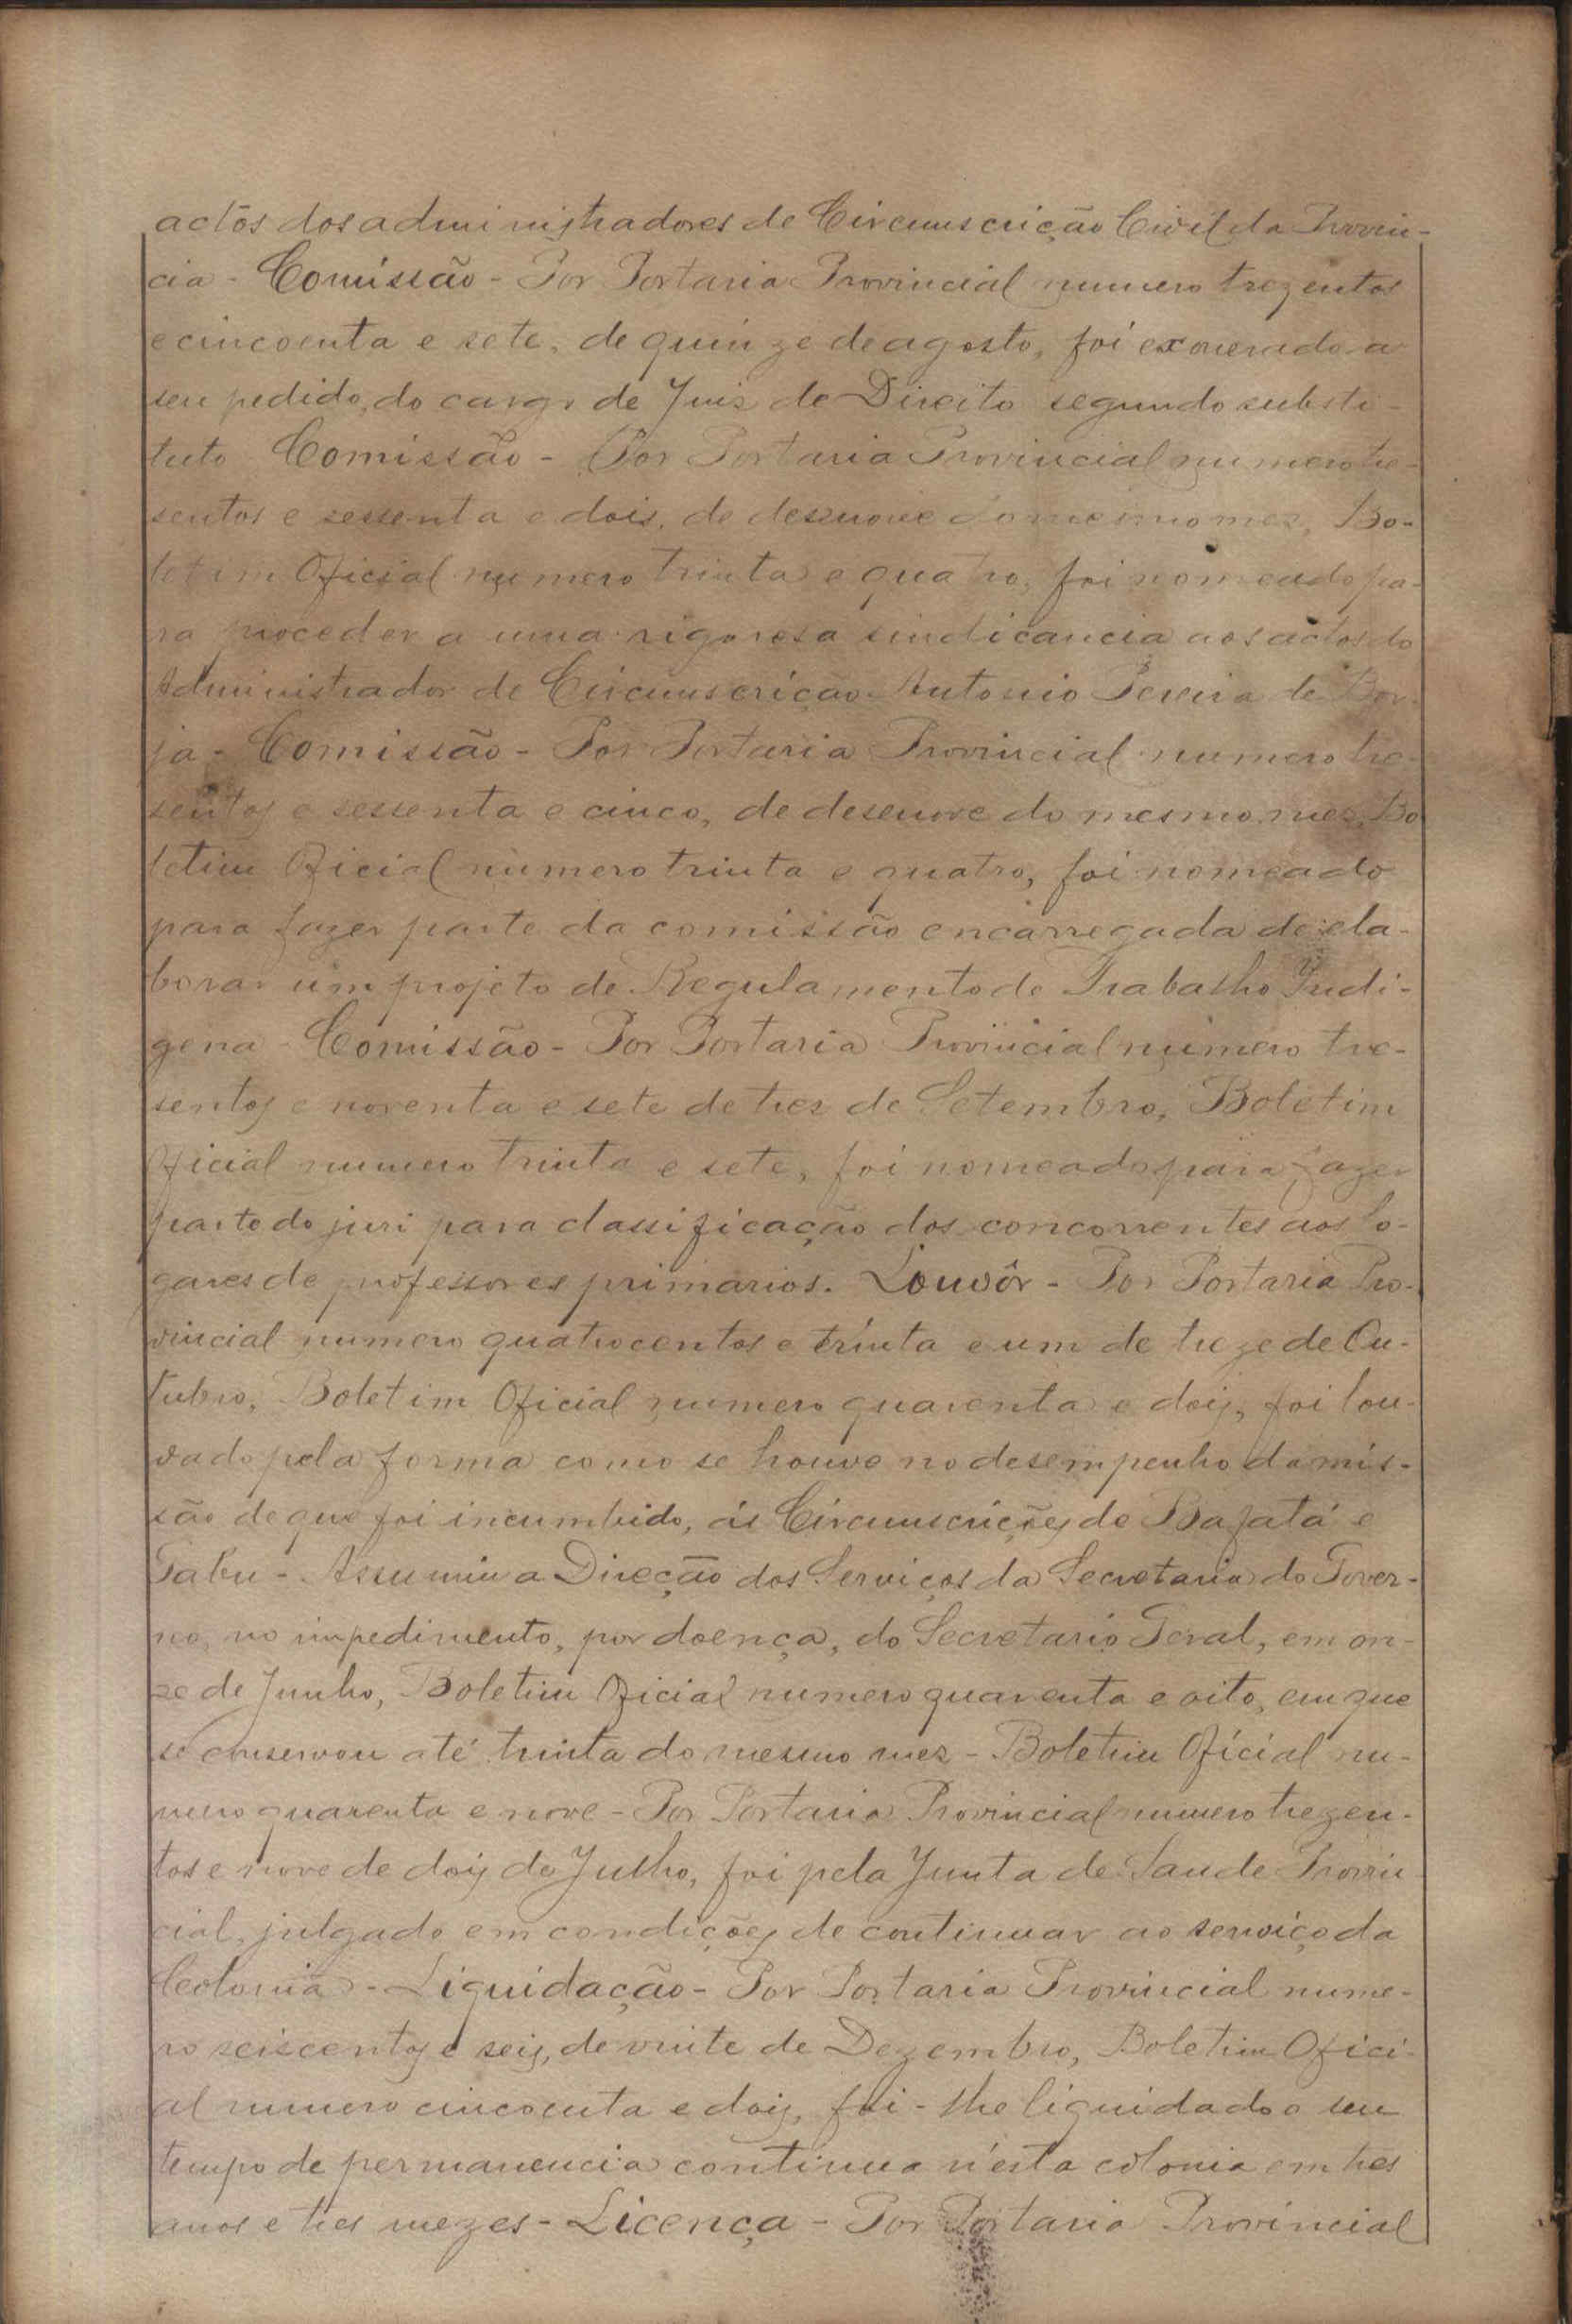 actos dos administradores de Circumscrição Civil da Provin-
cia - Comissão - Por Portaria Provincial numero trezentos
e cincoenta e sete, de quinze de agosto, foi exonerado a
seu pedido, do cargo de Juiz de Direito segundo substi-
tuto Comissão - Por Portaria Provincial numero tre-
sentos e sessenta e dois, de desenove do mesmo mez, Bo-
letim Oficial numero trinta e quatro, foi nomeado pa-
ra proceder a uma rigorosa sindicancia aos actos do
Administrador de Circumscrição Antonio Pereira de Bor-
ja - Comissão - Por Portaria Provincial numero tre-
sentos e sessenta e cinco, de desenove do mesmo mez, Bo
letim Oficial numero trinta e quatro, foi nomeado
para fazer parte da comissão encarregada de ela-
borar um projeto de Regulamento de Trabalho Indi-
gena - Comissão - Por Portaria Provincial numero tre-
sentos e noventa e sete de trez de Setembro, Boletim
Oficial numero trinta e sete, foi nomeado para fazer
parte do juri para classificação dos concorrentes aos lo-
gares de professores primarios. Louvôr - Por Portaria Pro-
vincial numero quatrocentos e trinta e um de treze de Ou-
tubro, Boletim Oficial numero quarenta e dois, foi lou-
vado pela forma como se houve no desempenho da mis-
são de que foi incumbido, ás Circumscrições de Bafatá e
Gabu - Assumiu a Direcção dos Serviços da Secretaria do Gover-
no, no impedimento, por doença, do Secretario Geral, em on-
ze de Junho, Boletim Oficial numero quarenta e oito, em que
se conservou até trinta do mesmo mez - Boletim Oficial nu-
mero quarenta e nove - Por Portaria Provincial numero trezen-
tos e nove de dois de Julho, foi pela Junta de Saude Provin
cial, julgado em condições de continuar ao serviço da
Colonia - Liquidação - Por Portaria Provincial nume-
ro seiscentos e seis, de vinte de Dezembro, Boletim Ofici-
al numero cincoenta e dois, foi-lhe liquidado o seu
tempo de permanencia continua n'esta colonia em tres
anos e tres mezes - Licença - Por Portaria Provincial